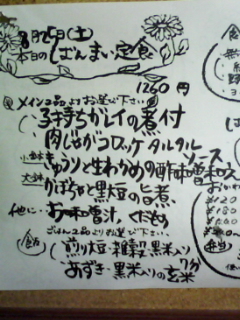 8月25日(土)
本日のしぜんまい定食
1260円
メイン2品よりお選び下さい
子持ちがレイの煮付
肉じゃがコロッケ タルタル
ソース
小鉢 きゅうりと生わかめの酢味噌和え
大鉢 かぼちゃと黒豆の旨煮
他に・お味噌汁、くだもの
ごはん2品よりお選び下さい
飯 煎り大豆・雑穀・黒米入り
あずき・黒米入りの玄米
おかわ
¥120
¥180
弁当